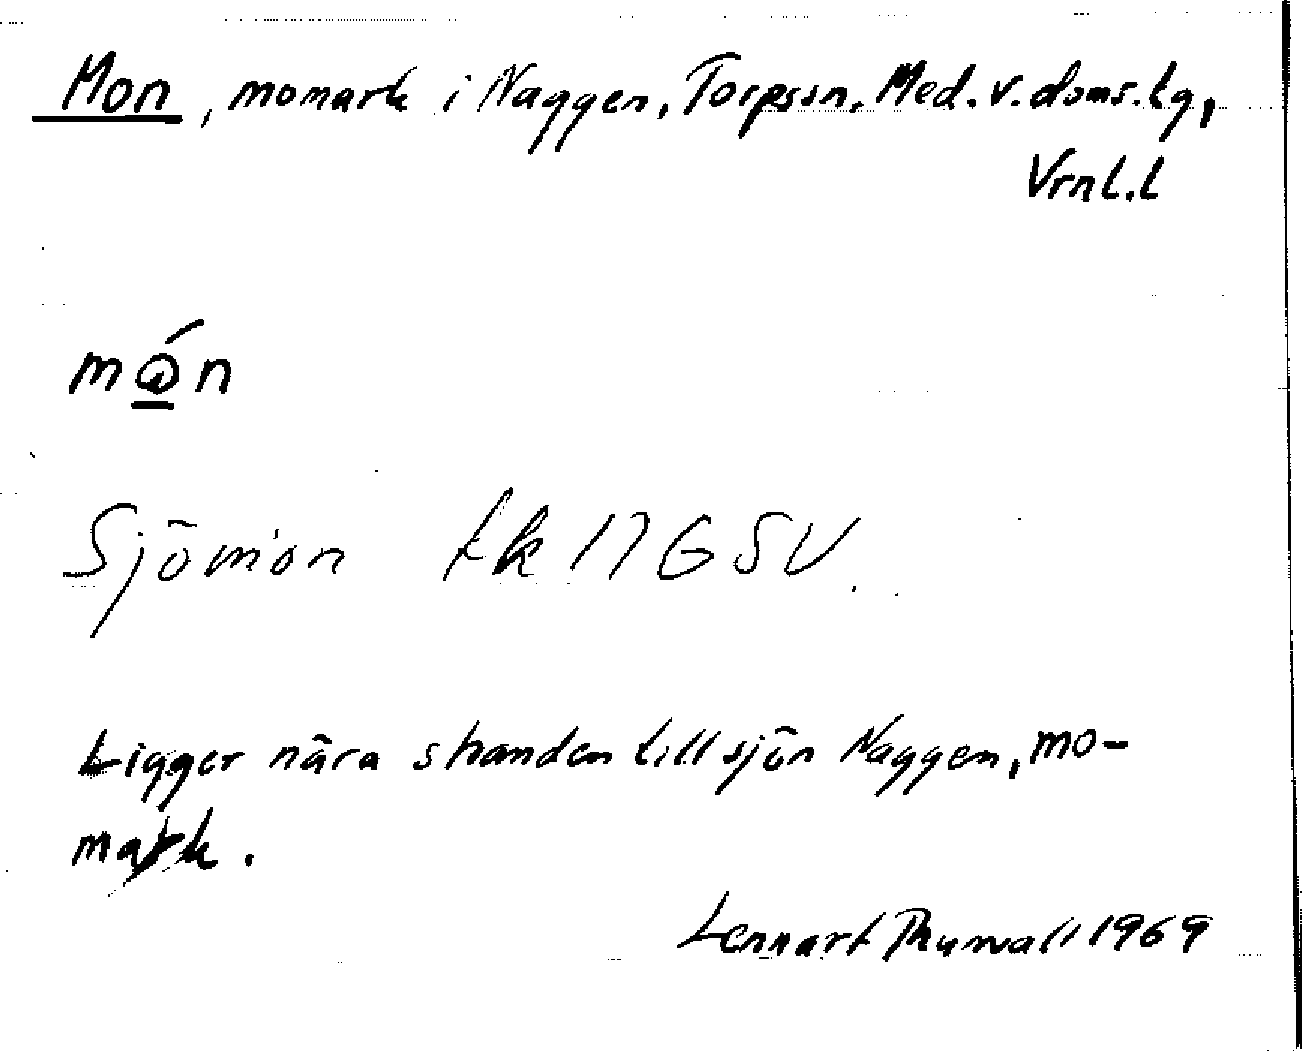 Mon, momark i Naggen, Torpssn, Med. v. doms. lg,
Vrnl. l
Sjömon tk 17G SV.
Ligger nära stranden till sjön Naggen, mo-
mark.
Lennart Thunwall 1969